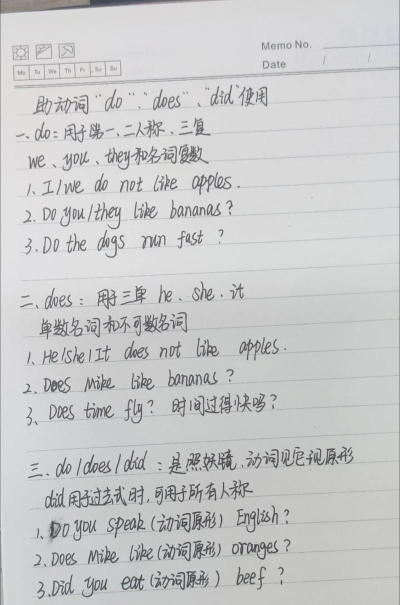 Memo No.
Mo Tu We Th Fr Sa Su
Date / /
助动词“do”、“does”、“did”使用
一、do：用于第一、二人称、三复
we、you、they和名词复数
1. I/we do not like apples.
2. Do you/they like bananas?
3. Do the dogs run fast?
二、does：用于三单 he、she、it
单数名词和不可数名词
1. He/she/It does not like apples.
2. Does Mike like bananas?
3、Does time fly? 时间过得快吗?
三、do/does/did：是照妖镜，动词见它现原形
did用于过去式时，可用于所有人称
1、Do you speak(动词原形) English?
2. Does Mike like(动词原形) oranges?
3. Did you eat(动词原形) beef?